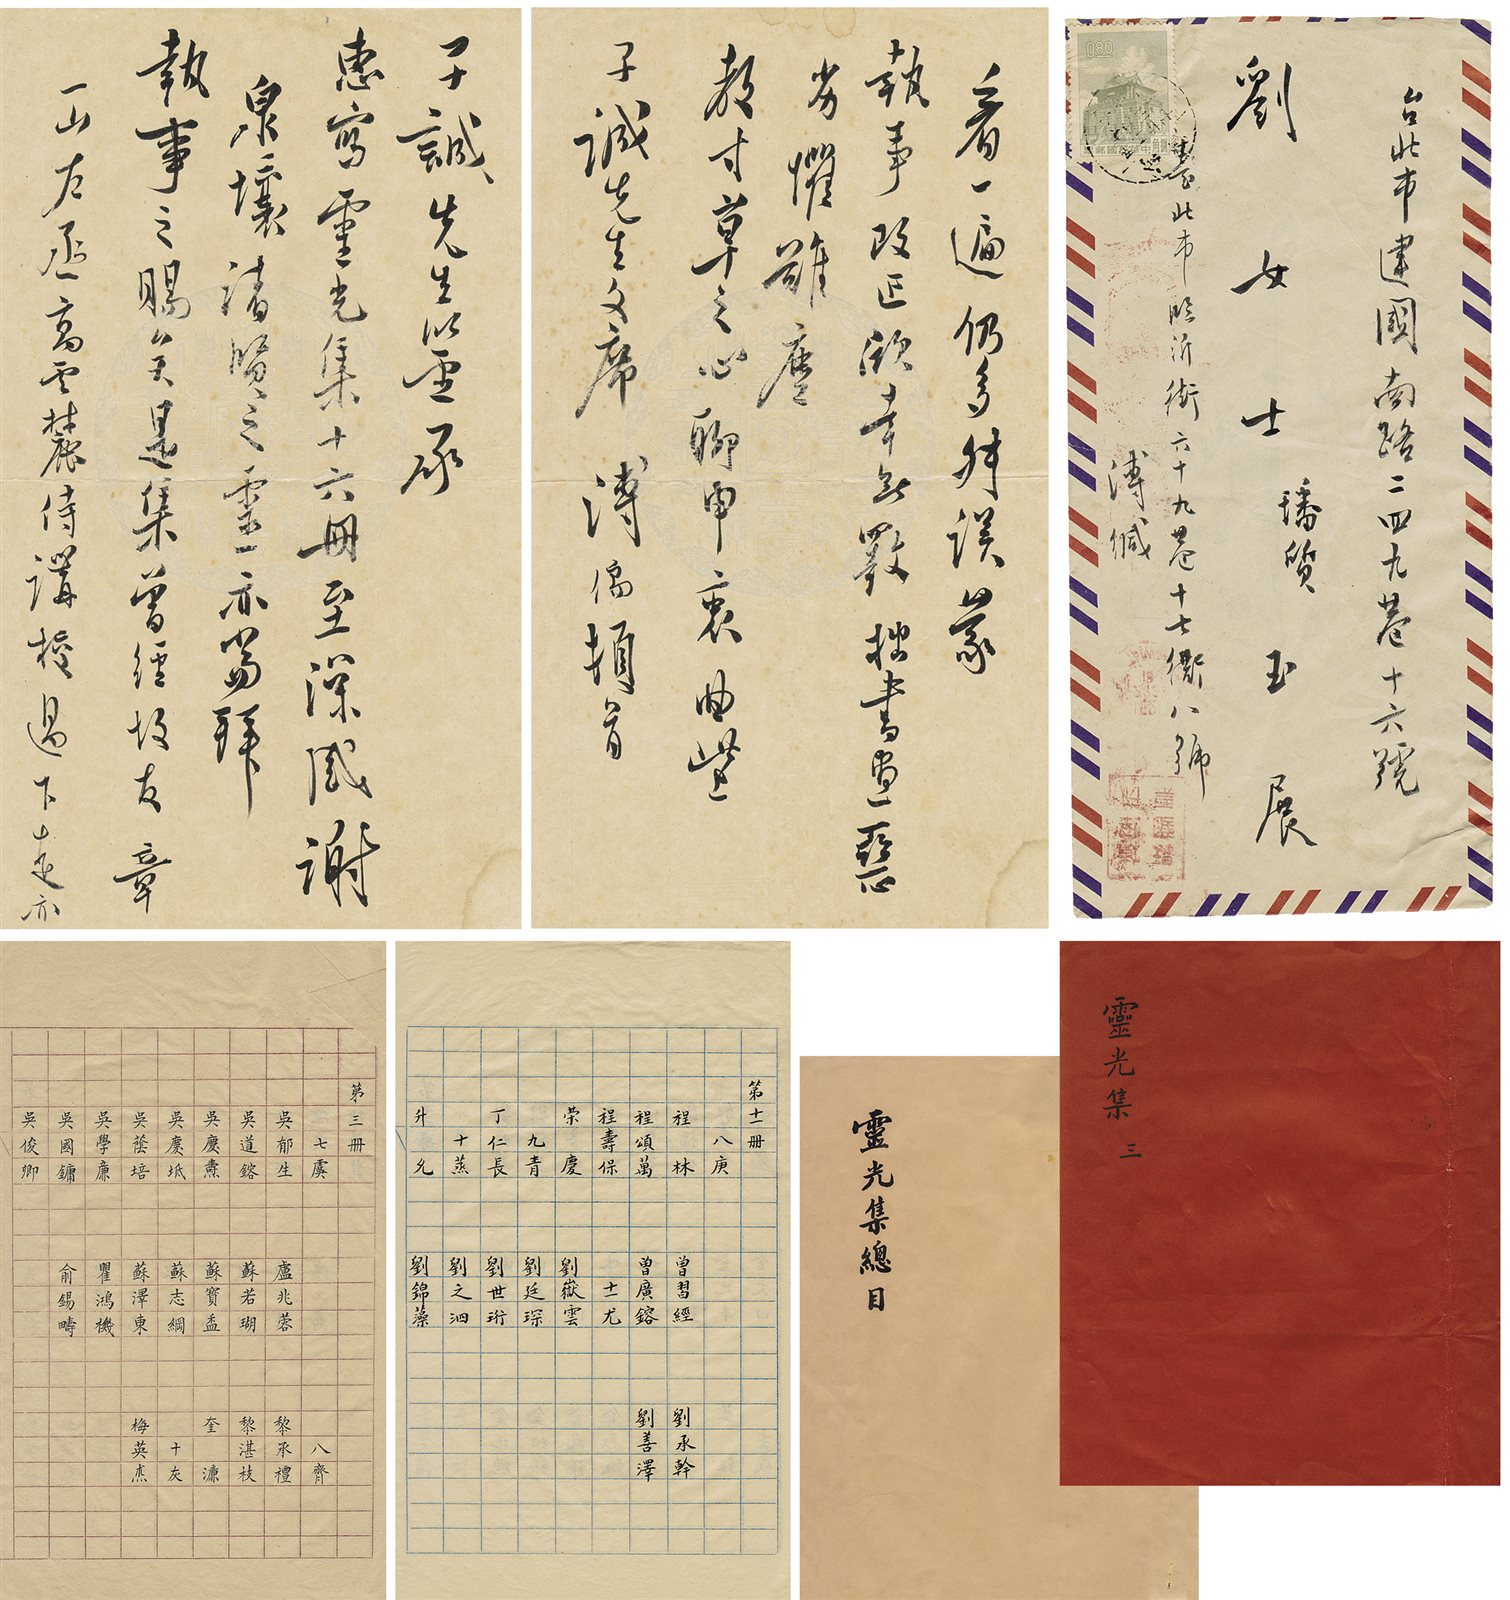 子誠先生以寧承
惠寫靈光集十六冊至深感謝
泉壤諸賢之靈亦當拜
執事之賜矣是集曾經故友章
一山左丞高雲麓侍講校過下走亦
看一遍仍多舛誤蒙
執事改正欣幸無斁拙書畫惡
劣懼難塵
教寸草之心聊申衷曲蓋
子誠先生文席 溥儒頓首
台北市建國南路二四九巷十六號
劉女士璠質玉展
臺北市臨沂街六十九巷十七衖八號
溥緘
0.80
第三冊
七虞 八齊
吳郁生 盧兆蓉 黎承禮
吳道鎔 蘇若瑚 黎湛枝
吳慶燾 蘇寶盉 奎濂
吳慶坻 蘇志綱 十灰
吳蔭培 蘇澤東 梅英杰
吳學廉 瞿鴻機
吳國鏞 俞錫疇
吳俊卿
第十一冊
八庚
程林 曾習經 劉承幹
程頌萬 曾廣鎔 劉善澤
程壽保 十一尤
榮慶 劉嶽雲
九青 劉廷琛
丁仁長 劉世珩
十蒸 劉之泗
升允 劉錦藻
靈光集總目
靈光集 三